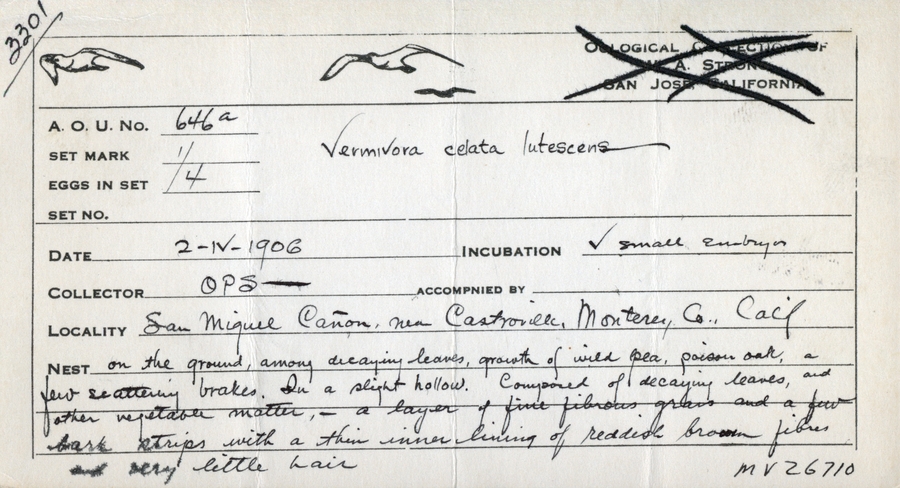 3301
OOLOGICAL COLLECTION OF
W. A. STRONG
SAN JOSE, CALIFORNIA
A. O. U. NO. 646a
Vermivora celata lutescens
SET MARK 1/
EGGS IN SET /4
SET NO.
DATE 2-IV-1906 INCUBATION ✓ small embryos
COLLECTOR OPS — ACCOMPNIED BY
LOCALITY San Miguel Cañon, near Castroville, Monterey Co., Calif
NEST on the ground, among decaying leaves, growth of wild pea, poison oak, a
few scattering brakes. In a slight hollow. Composed of decaying leaves, and
other vegetable matter, — a layer of fine fibrous grass and a few
bark strips with a thin inner lining of reddish brown fibres
and very little hair
MVZ6710